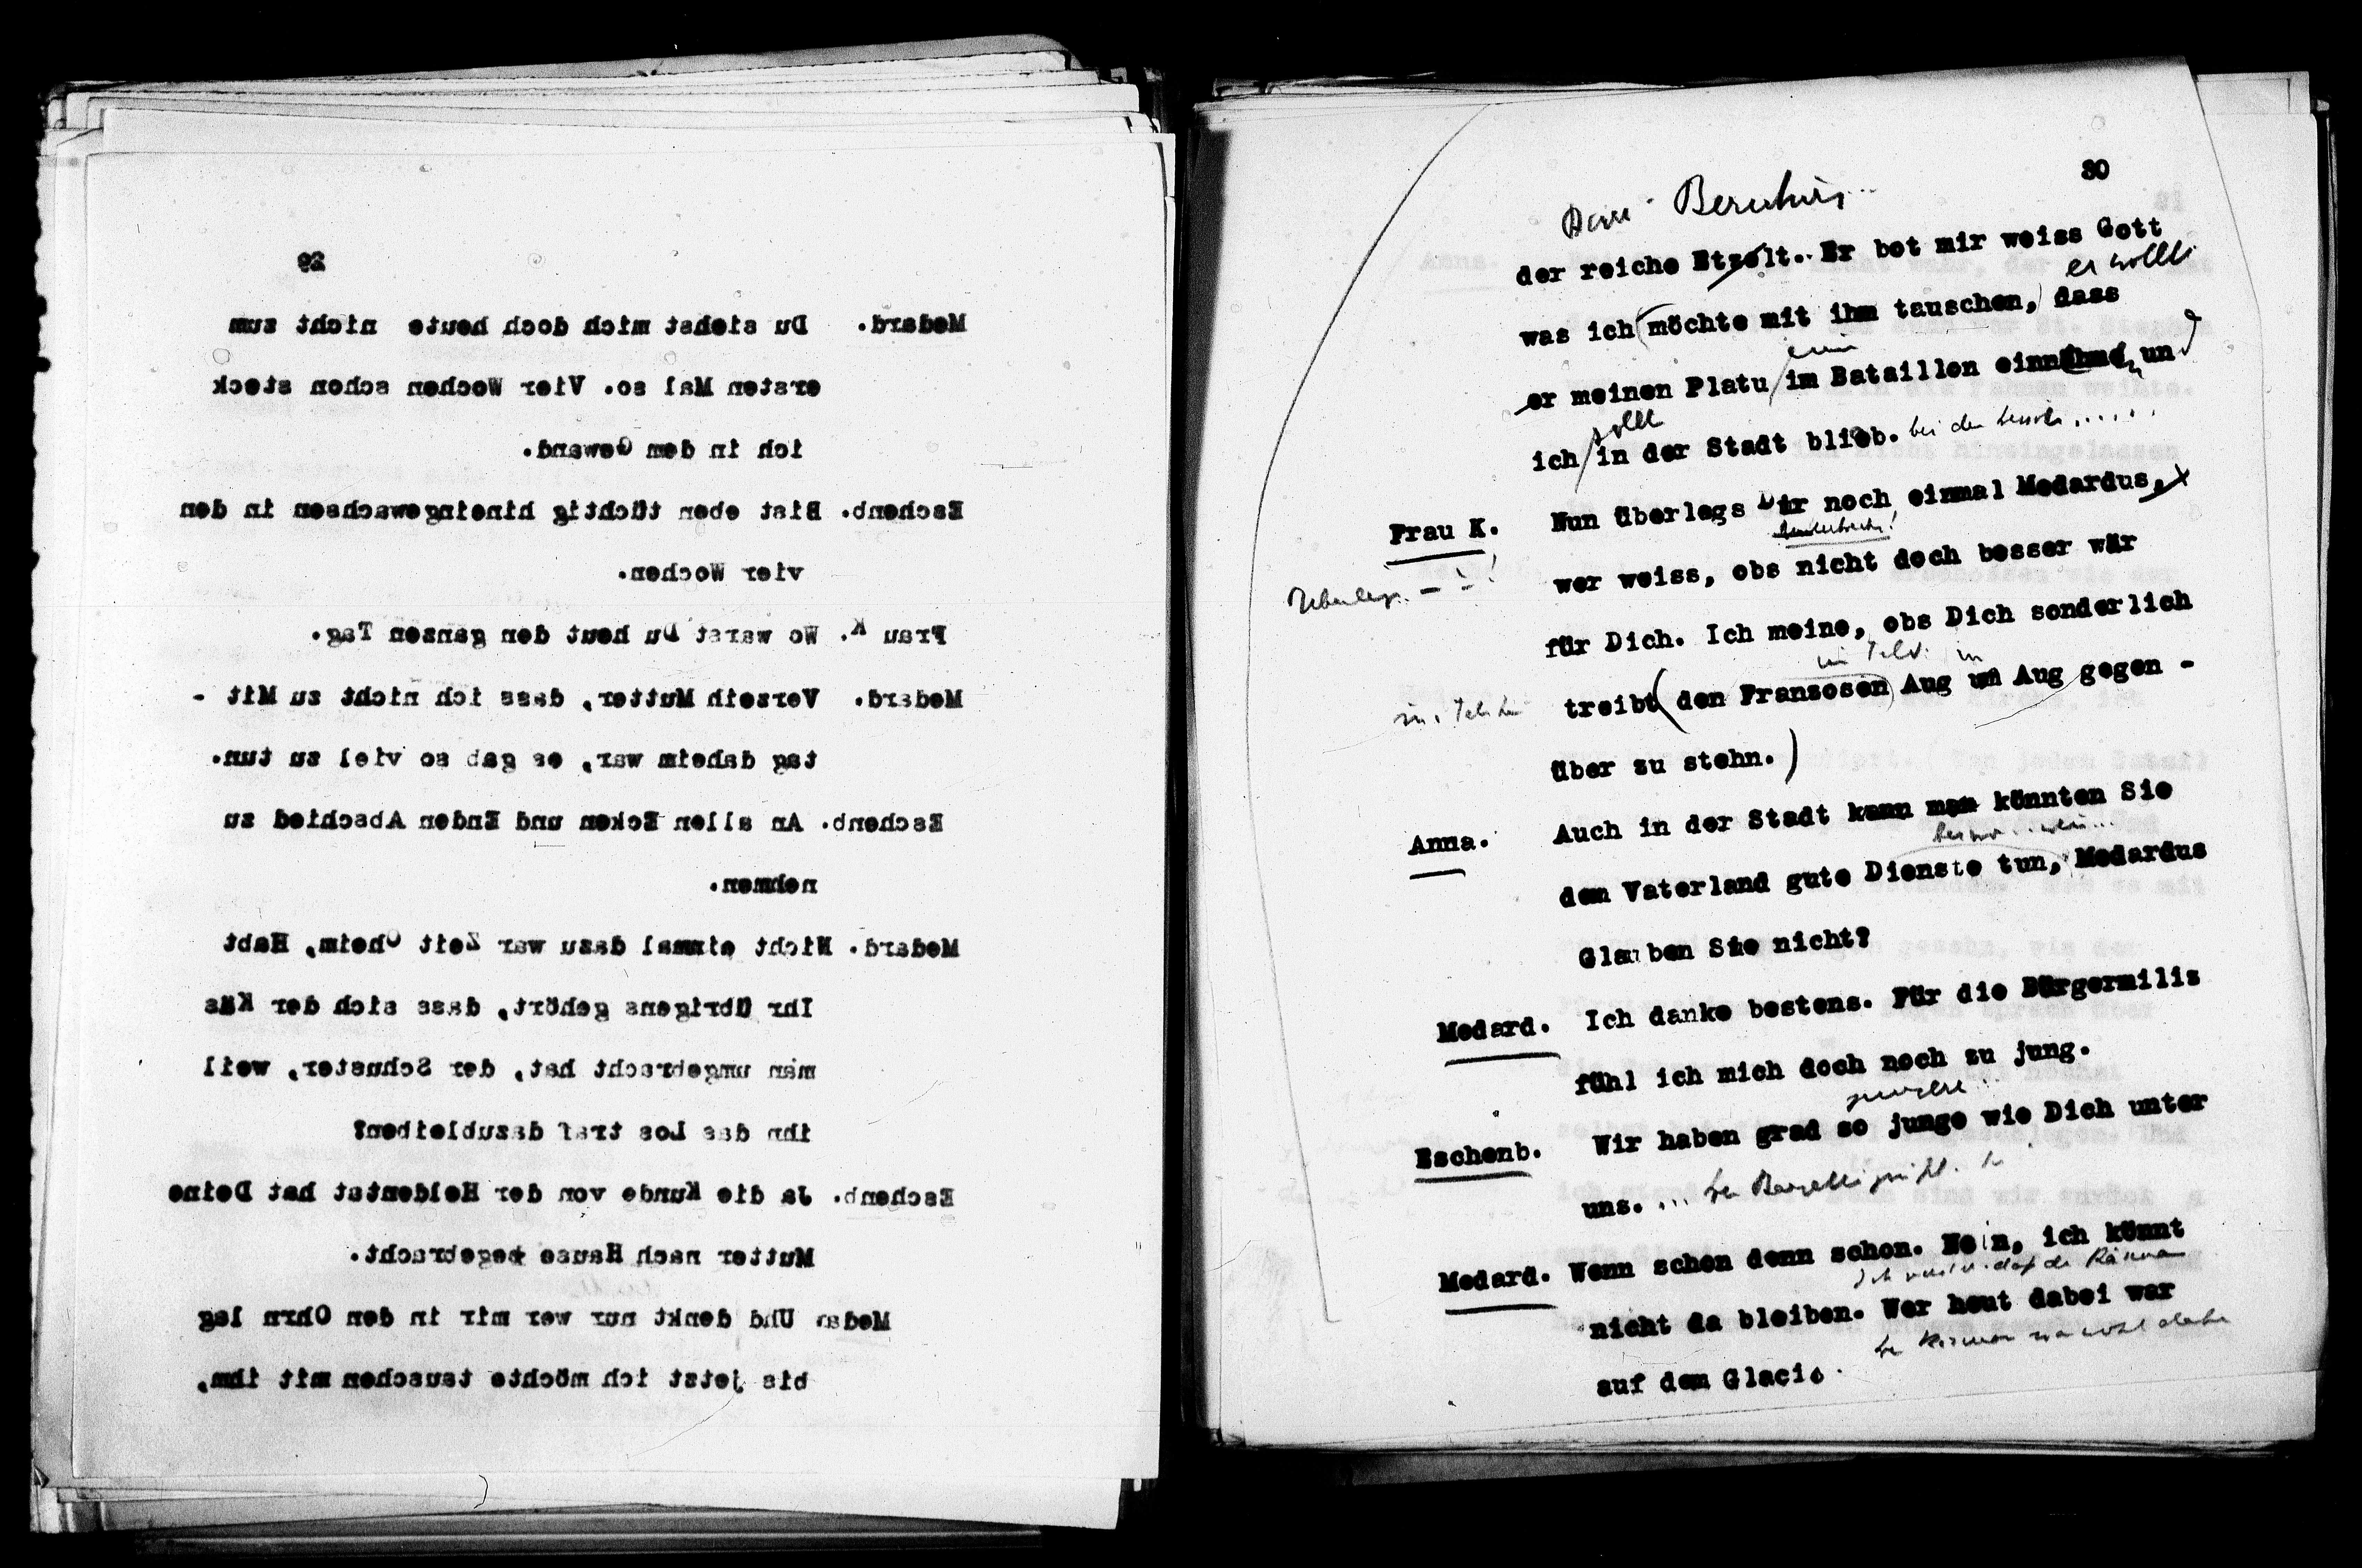 29
Medard. Du siehst mich doch heute nicht zum
ersten Mal so. Vier Wochen schon steck
ich in dem Gewand.
Eschenb. Bist eben tüchtig hineingewachsen in den
vier Wochen.
Frau K. Wo warst Du heut den ganzen Tag.
Medard. Verzeih Mutter, dass ich nicht zu Mit -
tag daheim war, es gab so viel zu tun.
Eschenb. An allen Ecken und Enden Abschied zu
nehmen.
Medard. Nicht einmal dazu war Zeit Oheim, Habt
Ihr übrigens gehört, dass sich der Käs
man umgebracht hat, der Schuster, weil
ihn das Los traf dazubleiben?
Eschenb. Ja die Kunde von der Heldentat hat Deine
Mutter nach Hause gebracht.
Medar Und denkt nur wer mir in den Ohrn lag
bis jetzt ich möchte tauschen mit ihm,
30
der reiche Etzelt. Er bot mir weiss Gott
er wollte
was ich möchte mit ihm tauschen, dass
er meinen Platz im Bataillon einnähme, und
sollt
ich in der Stadt blieb. bei den
Frau K. Nun überlegs Dir noch einmal Medardus,
wer weiss, obs nicht doch besser wär
Überleg
für Dich. Ich meine, obs Dich sonderlich
im Feld in
treibt (den Franzosen) Aug um Aug gegen -
über zu stehn.)
Anna. Auch in der Stadt kann man könnten Sie
dem Vaterland gute Dienste tun, Medardus
Glauben Sie nicht?
Medard. Ich danke bestens. Für die Bürgermiliz
fühl ich mich doch noch zu jung.
Eschenb. Wir haben grad so junge wie Dich unter
uns.
Medard. Wenn schon denn schon. Nein, ich könnt
nicht da bleiben. Wer heut dabei war
auf dem Glacis.